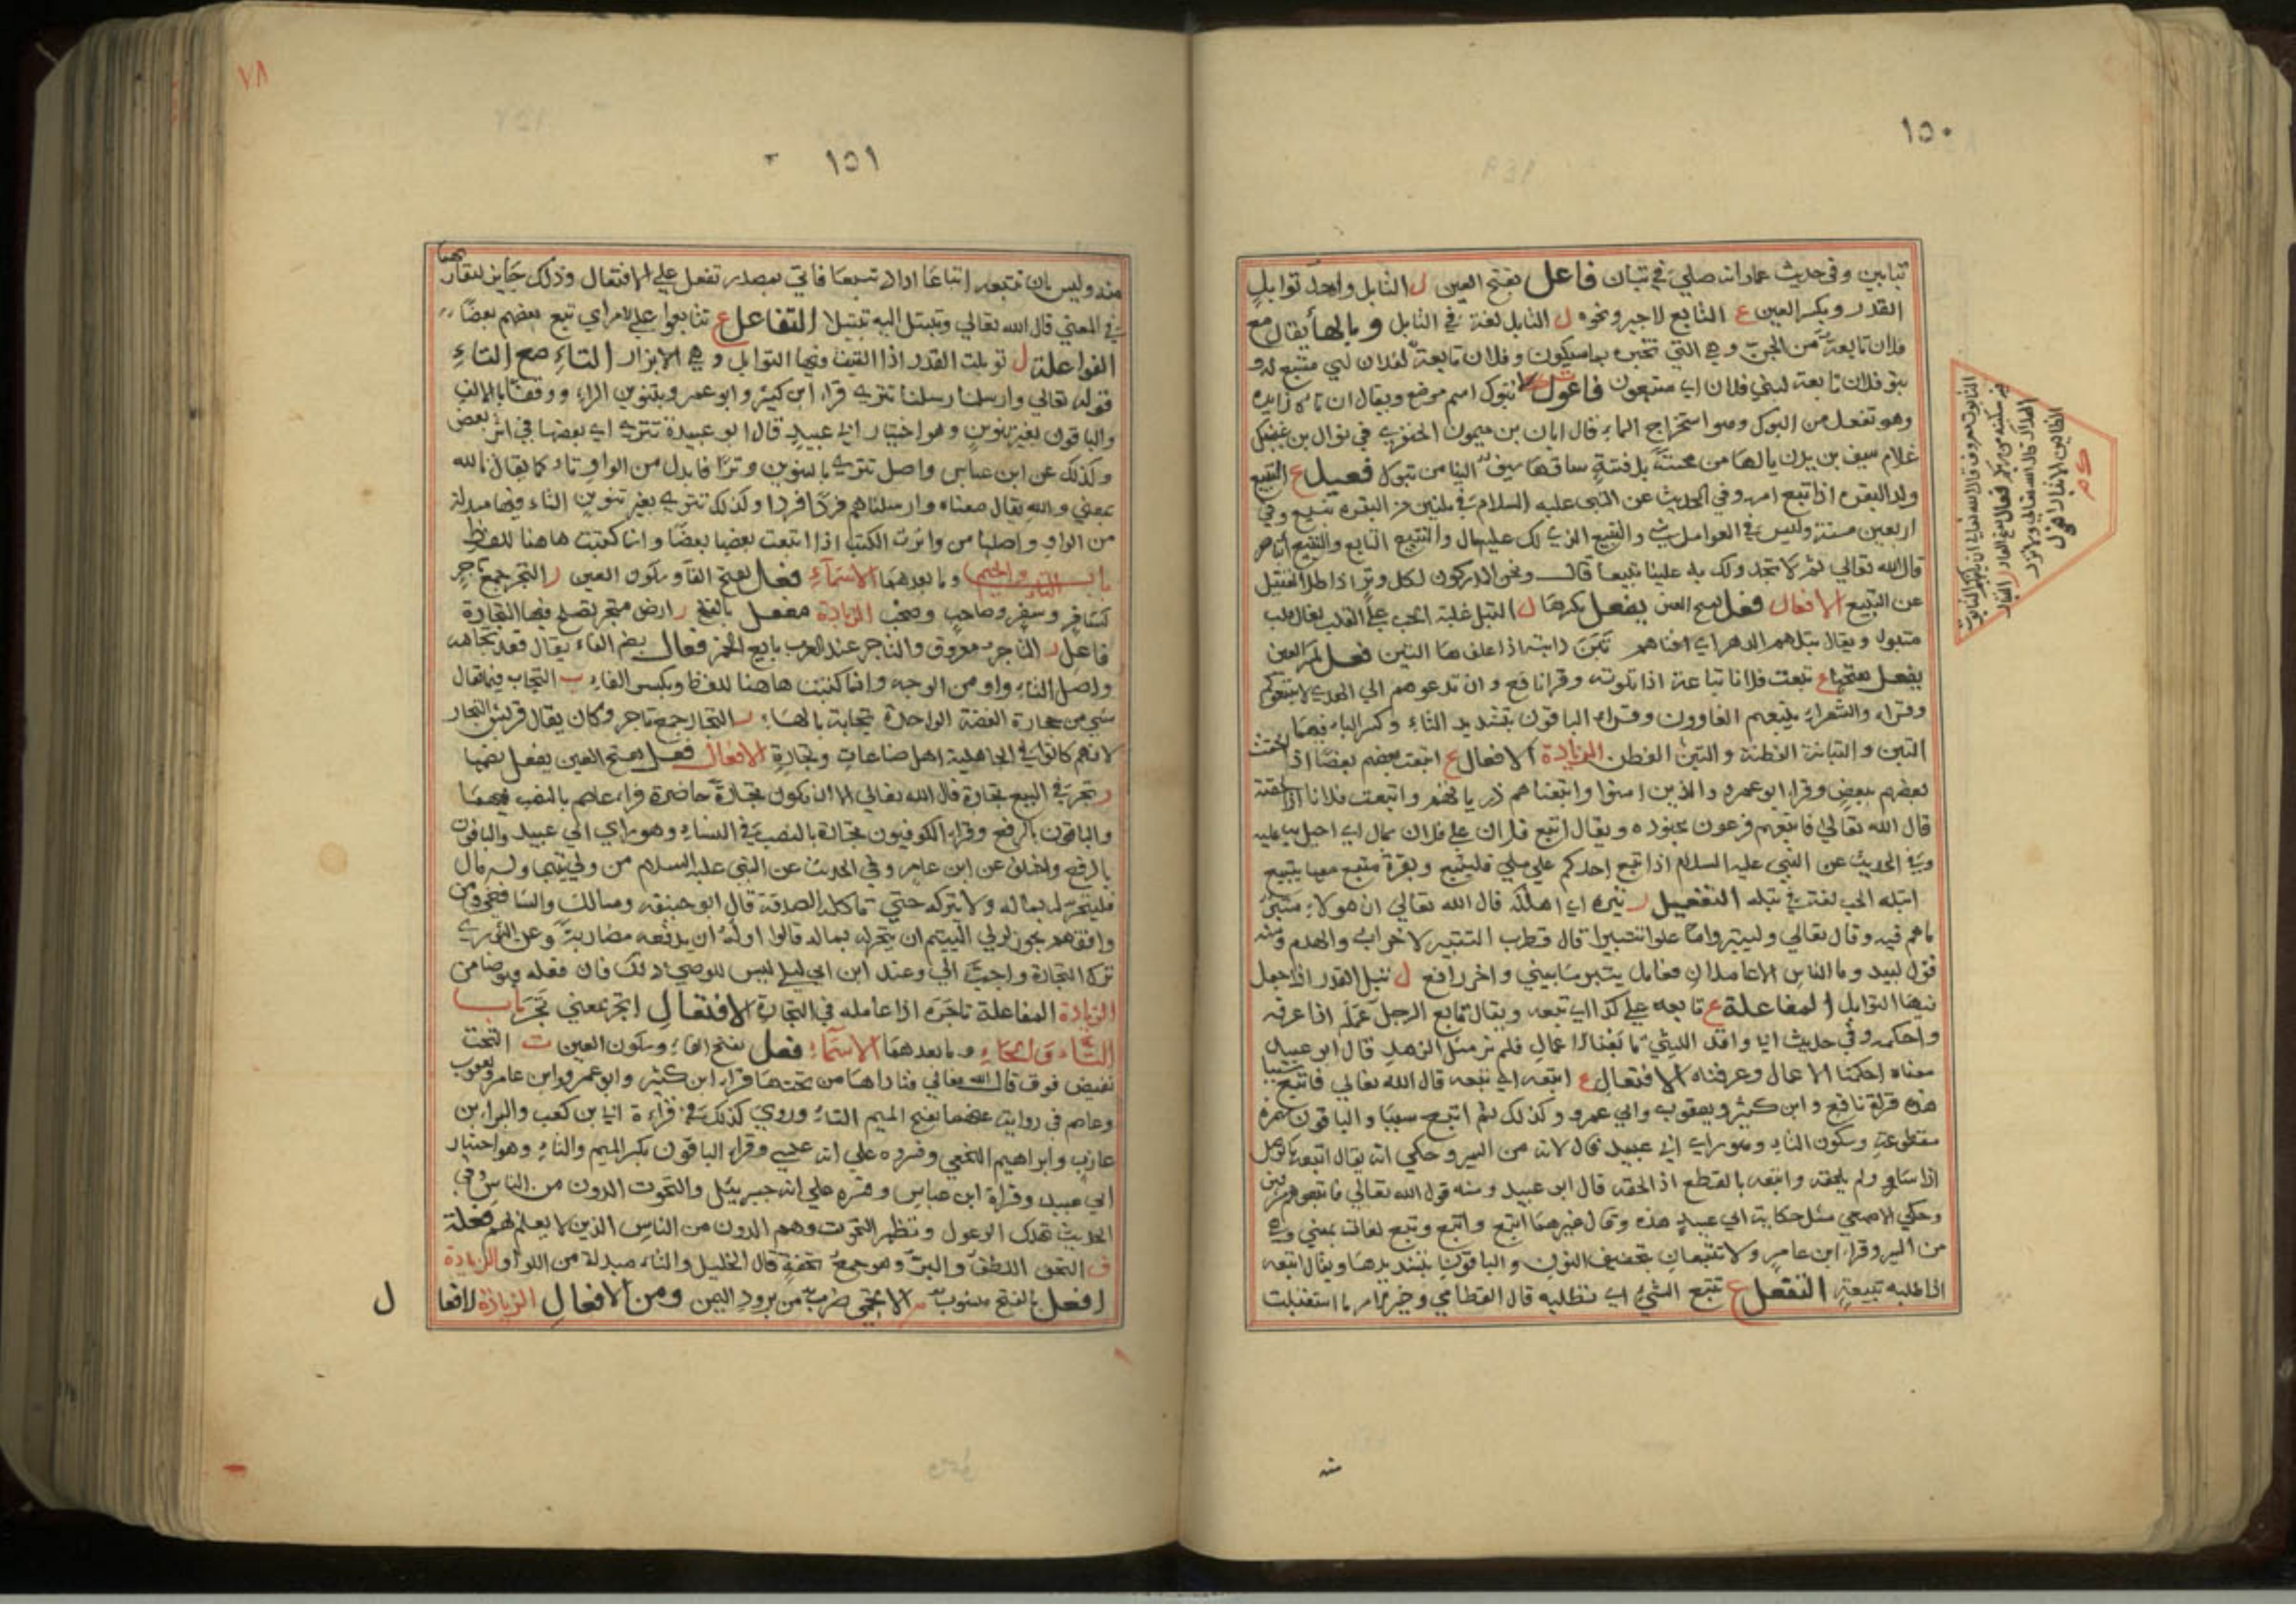 ١٥٠
تبابين وفي حديث عمار انه صلى في تبان فاعل بفتح العين ل التابل واحد توابل
القدر وبكسر العين ع التابع لاجير ونحوه ل التابل لغة في التابل وبالهاء يقال مع
فلان تابعة من الجن وهي التي تخبره بما سيكون وفلان تابعة لفلان اي متبع له و
بنو فلان تابعة لبني فلان اي متبعون فاعول تبوك اسم موضع ويقال ان تاه زايده
وهو تفعل من البوك وهو استخراج الماء قال ابان بن ميمون الخنفري في نوال بن عتيك
غلام سيف بن يزن يالها من محنة بل فتنة ساقها سيف الينا من تبوك فعيل ع التبيع
ولد البقره اذا تبع امه وفي الحديث عن النبي عليه السلام في ثلثين من البقره تبيع وفي
اربعين مسنة وليس في العوامل شي والتبيع الذي لك عليه مال والتبيع التابع والتبيع الناصر
قال الله تعالى ثم لا تجد ولك به علينا تبيعا قال ونحن المدركون لكل وتر اذا طل القتيل
عن التبيع الافعال فعل بفتح العين يفعل بكسرها ل التبل غلبة الحب على القلب يقال قلب
متبول ويقال تبلهم الدهر اي افناهم تبن دابته اذا علفها التبن فعل بكسر العين
يفعل بفتحها ع تبعت فلانا تباعة اذا تلوته وقرا نافع وان تدعوهم الى الهدى لا يتبعوكم
وقراء والشعراء يتبعهم الغاوون وقراء الباقون بتشديد التاء وكسر الباء فيهما
التبن والتبانة الفطنة والتبن الفطن الزيادة الافعال ع اتبعت بعضهم بعضا اذا الحقت
بعضهم ببعض وقراء ابو عمرو والذين امنوا واتبعناهم ذرياتهم واتبعت فلانا اذا لحقته
قال الله تعالى فاتبعهم فرعون بجنوده ويقال اتبع فلان على فلان بمال اي احيل به عليه
وفي الحديث عن النبي عليه السلام اذا اتبع احدكم على ملي فليتبع وبقرة متبع معها تبيع
اتبله الحب لغة في تبله التفعيل ر تبره اي اهلكه قال الله تعالى ان هولاء متبر
ما هم فيه وقال تعالى وليتبروا ما علوا تتبيرا قال قطرب التتبير لاخراب والهدم ومنه
قول لبيد وما الناس الا عاملان فعامل يتبر ما يبني واخر رافع ل تبل القدر اذا جعل
فيها التوابل المفاعلة ع تابعه على كذا اي تبعه ويقال تابع الرجل عمله اذا عرفه
واحكمه وفي حديث ابي واقد الليثي تابعنا الاعمال فلم نر مثل الزهد قال ابو عبيد
معناه احكمنا الاعمال وعرفناه الافتعال ع اتبعه اي تبعه قال الله تعالى فاتبع سببا
هذه قراة نافع وابن كثير ويعقوب وابي عمرو وكذلك ثم اتبع سببا والباقون بهمزة
مقطوعة وسكون التاء وهو راي ابي عبيد قال لانه من السير وحكي انه يقال اتبعه بالوصل
اذا سار ولم يلحقه واتبعه بالقطع اذ الحقه قال ابو عبيد ومنه قول الله تعالى فاتبعوهم مشرقين
وحكي الاصمعي مثل حكاية ابي عبيد هذه وقال غيرهما اتبع واتبع وتبع لغات بمعنى وهي
من السير وقراء ابن عامر ولا تتبعان بتخفيف النون والباقون بتشديدها ويقال اتبعه
اذا طلبه بتبيعة التفعل ع تتبع الشي اي تطلبه قال القطامي وخير الامر ما استقبلت
التابوت معروف قال الله تعالى ان ياتيكم التابوت
فيه سكينة من ربكم فعال بفتح الفاء ر التبار
الهلاك قال الله تعالى ولا تزد
الظالمين الا تبارا
منه
٧٨
١٥١
منه وليس بان تتبعه اتباعا اراد تتبعا فاتى بمصدر تفعل على الافتعال وذلك جايز لتقاربهما
في المعنى قال الله تعالى وتبتل اليه تبتيلا التفاعل ع تتابعوا على الامر اي تبع بعضهم بعضا
الفواعلة ل توبلت القدر اذا القيت فيها التوابل وهي الابزار التاء مع التاء
قوله تعالى وارسلنا رسلنا تترى قراء ابن كثير وابو عمرو بتنوين الراء ووقفا بالالف
والباقون بغير تنوين وهو اختيار ابي عبيد قال ابو عبيدة تترى اي بعضها في اثر بعض
وكذلك عن ابن عباس واصل تترى بالتنوين وترا فابدل من الواو تاء كما يقال تالله
بمعنى والله يقال معناه وارسلناهم فردا فردا وكذلك تترى بغير تنوين التاء فيها مبدلة
من الواو واصلها من واترت الكتب اذا اتبعت بعضها بعضا وانما كتبت هاهنا للفظ
باب التاء والجيم وما بعدهما الاسماء فعل بفتح الفاء وسكون العين ر التجر جمع تاجر
كسافر وسفر وصاحب وصحب الزيادة مفعل بالفتح ر ارض متجر يصلح فيها التجارة
فاعل ر التاجر معروف والتاجر عند العرب بايع الخمر فعال بضم الفاء يقال قعد تجاهه
واصل التاء واو من الوجه وانما كتبت هاهنا للفظ وبكسر الفاء ب التجاب فيما يقال
شي من حجارة الفضة الواحدة تجابة بالهاء ر التجار جمع تاجر وكان يقال قريش التجار
لانهم كانوا في الجاهلية اهل صناعات وتجارة الافعال فعل بفتح العين يفعل بضمها
ر تجر في البيع تجارة قال الله تعالى الا ان تكون تجارة حاضرة قراء عاصم بالنصب فيهما
والباقون بالرفع وقراء الكوفيون تجارة بالنصب في النساء وهو راي ابي عبيد والباقون
بالرفع واختلف عن ابن عامر وفي الحديث عن النبي عليه السلام من ولي يتيما وله مال
فليتجر له بماله ولا يتركه حتى تاكله الصدقة قال ابو حنيفه ومالك والشافعي ومن
وافقهم يجوز لولي اليتيم ان يتجر له بماله قالوا وله ان يدفعه مضاربة وعن الثوري
ترك التجارة واجب الي وعند ابن ابي ليلى ليس للوصي ذلك فان فعله فهو ضامن
الزيادة المفاعلة تاجره اذا عامله في التجارة الافتعال اتجر بمعنى تجر باب
التاء والحاء وما بعدهما الاسماء فعل بفتح الفاء وسكون العين ت التحت
نقيض فوق قال الله تعالى فناداها من تحتها قراء ابن كثير وابو عمرو وابن عامر ويعقوب
وعاصم في رواية عنهما بفتح الميم التاء وروي كذلك في قراءة ابي بن كعب والبراء بن
عازب وابراهيم النخعي وفسروه على انه عيسى وقراء الباقون بكسر الميم والتاء وهو اختيار
ابي عبيد وقراة ابن عباس وفسره على انه جبريئل والتحوت الدون من الناس وفي
الحديث تهلك الوعول وتظهر التحوت وهم الدون من الناس الذين لا يعلم بهم فعلة
ف التحف اللطف والبر وهو جمع تحفة قال الخليل والتاء مبدلة من الواو الزيادة
افعل بالفتح منسوب م الاتحمي ضرب من برود اليمن ومن الافعال الزيادة الافعا
ل